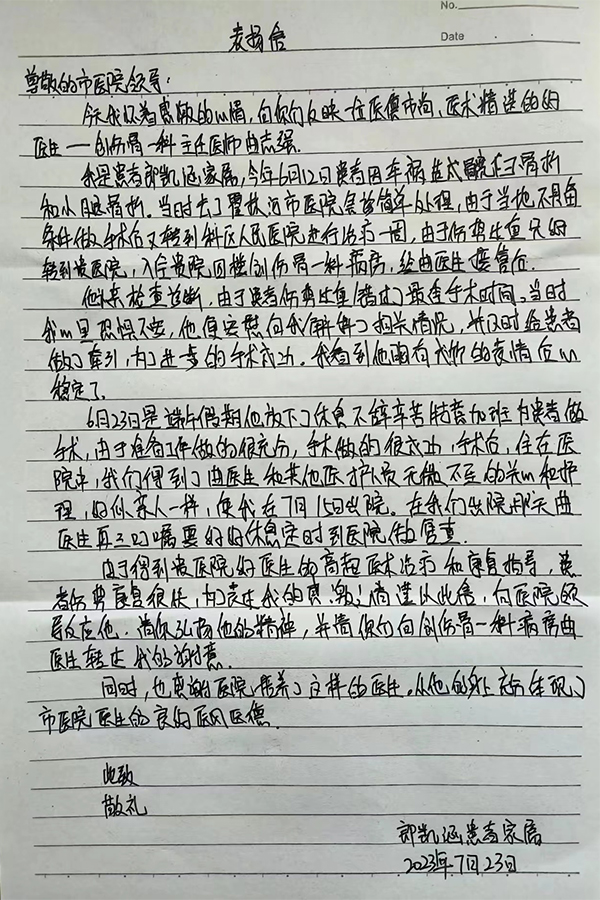 No.
Date
表扬信
尊敬的市医院领导:
今天我以为感激的心情,向你们反映一位医德高尚、医术精湛的好
医生——创伤骨一科主任医师曲志强.
我是患者郎凯涵家属,今年6月12日患者因车祸造成骨折
和小腿骨折.当时去了霍林河市医院简单处理,由于当地不具备
条件做手术后又转到科区人民医院进行治疗一周,由于伤势比重只好
转到贵医院,入住贵院四楼创伤骨一科病房,经曲医生接管后.
他来检查诊断,由于患者伤势比重错过了最佳手术时间,当时
我心里恐惧不安,他便安慰向我解释了相关情况,并及时给患者
做了牵引,为了进一步的手术成功.我看到他面有成功的表情后心
稳定了.
6月23日是端午假期他放下了休息不辞辛苦特意加班为患者做
手术,由于准备工作做的很充分,手术做的很成功,手术后,住在医
院中,我们得到了曲医生和其他医护人员无微不至的关心和护
理,好似亲人一样,使我在7月15日出院.在我们出院那天曲
医生再三叮嘱要好好休息定时到医院做复查.
由于得到贵医院好医生的高超医术治疗和康复指导,患
者伤势康复很快,为了表达我的感激之情谨以此信,向医院领
导反应他.请你弘扬他的精神,并请你们向创伤骨一科病房曲
医生转达我的谢意.
同时,也感谢医院培养了这样的医生.从他的身上充分体现了
市医院医生的良好医风医德.
此致
敬礼
郎凯涵患者家属
2023年7月23日